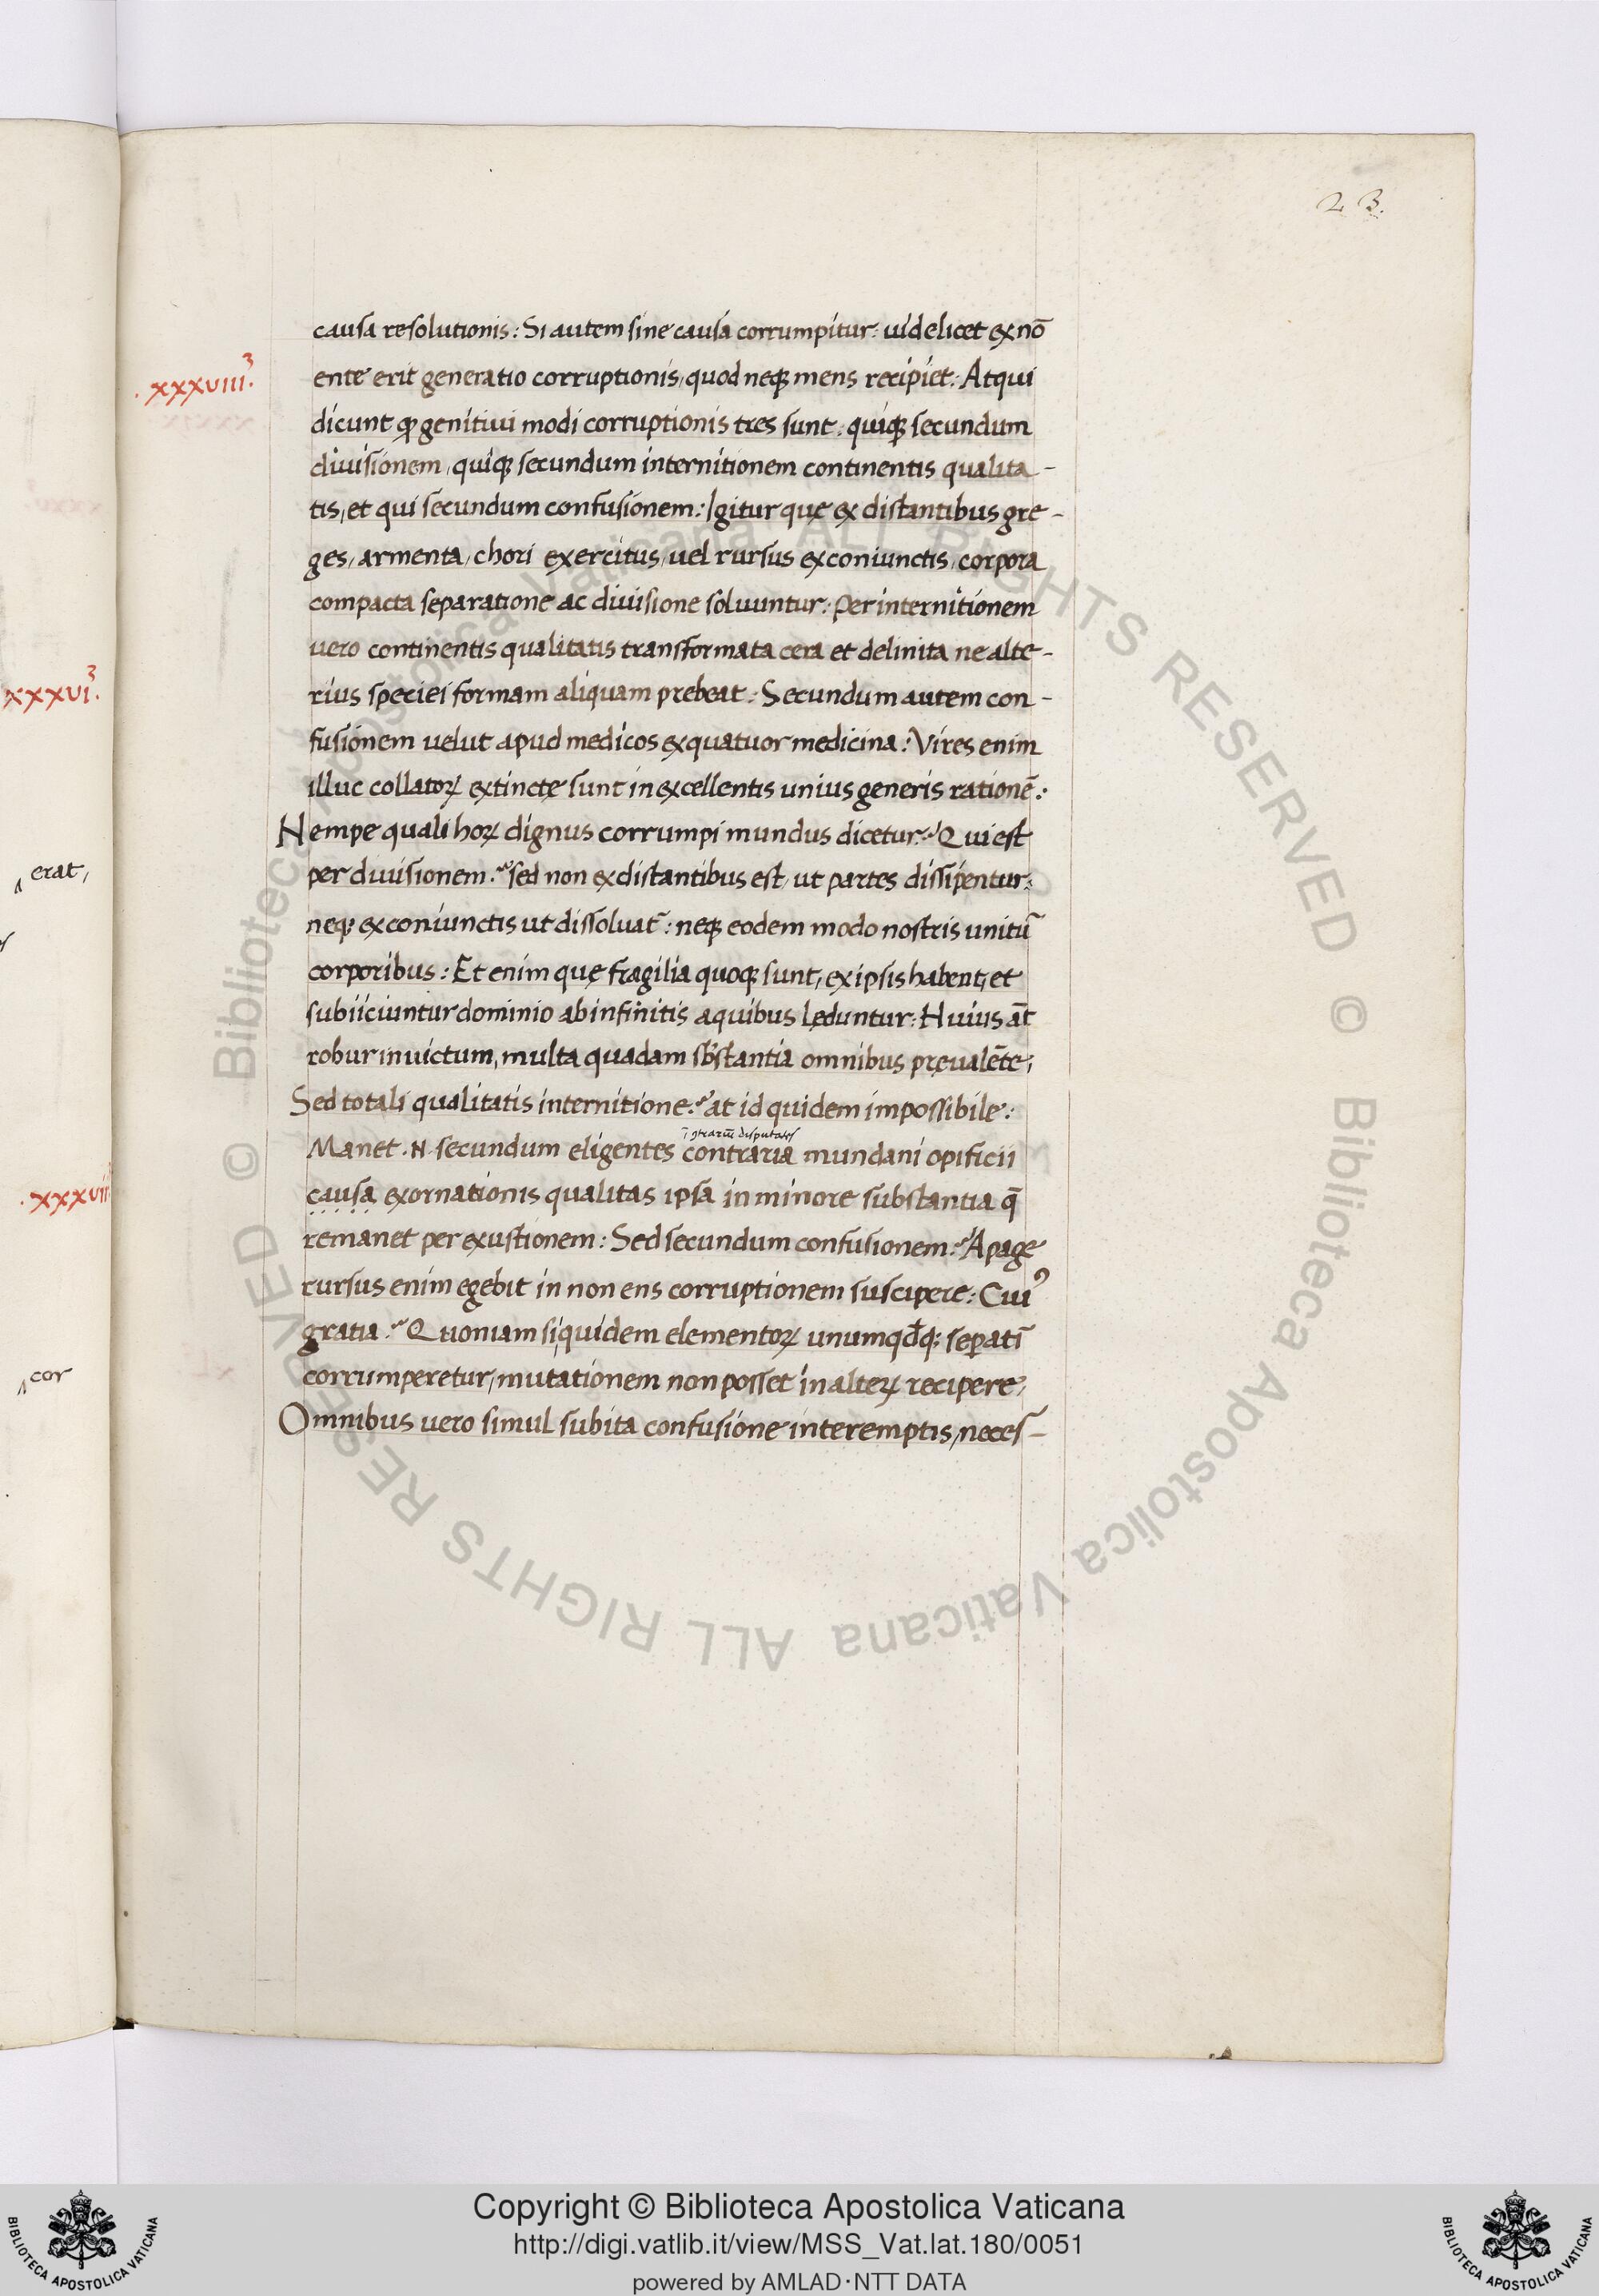 23.
causa resolutionis: Si autem sine causa corrumpitur: uidelicet ex nō
.xxxviii.
ente erit generatio corruptionis, quod neqꝫ mens recipiet: Atqui
dicunt ꝙ genitiui modi corruptionis tres sunt: quiqꝫ secundum
diuisionem, quiqꝫ secundum internitionem continentis qualita-
tis, et qui secundum confusionem: Igitur quę ex distantibus gre-
ges, armenta, chori exercitus, uel rursus ex coniunctis, corpora
compacta separatione ac diuisione soluuntur: Per internitionem
uero continentis qualitatis transformata cera et delinita ne alte-
rius speciei formam aliquam prebeat: Secundum autem con-
fusionem uelut apud medicos ex quatuor medicina: Vires enim
illuc collatoꝝ extinctę sunt in excellentis unius generis rationē:
Nempe quali hoꝝ dignus corrumpi mundus dicetur? Qui est
per diuisionem? sed non ex distantibus est, ut partes dissipentur:
neqꝫ ex coniunctis ut dissoluat̄: neqꝫ eodem modo nostris unitū
corporibus: Et enim quę fragilia quoqꝫ sunt, ex ipsis habent, et
subiiciuntur dominio ab infinitis a quibus lęduntur: Huius āt
robur inuictum, multa quadam sb̄stantia omnibus pręualēte;
Sed totali qualitatis internitione? at id quidem impossibile:
ī ꝯtrariū disputātes
Manet .N. secundum eligentes contraria mundani opificii
causa exornationis qualitas ipsa in minore substantia q̄
remanet per exustionem: Sed secundum confusionem? Apage
rursus enim egebit in non ens corruptionem suscipere: Cuiꝰ
gratia? Quoniam siquidem elementoꝝ unumqd̄qꝫ seꝑatī
corrumperetur, mutationem non posset in alteꝝ recipere,
Omnibus uero simul subita confusione interemptis, neces-
xxxvi.
erat,
.xxxvii
cor
© Biblioteca Apostolica Vaticana ALL RIGHTS RESERVED © Biblioteca Apostolica Vaticana ALL RIGHTS RESERVED
Copyright © Biblioteca Apostolica Vaticana
http://digi.vatlib.it/view/MSS_Vat.lat.180/0051
powered by AMLAD·NTT DATA
BIBLIOTECA APOSTOLICA VATICANA
BIBLIOTECA APOSTOLICA VATICANA